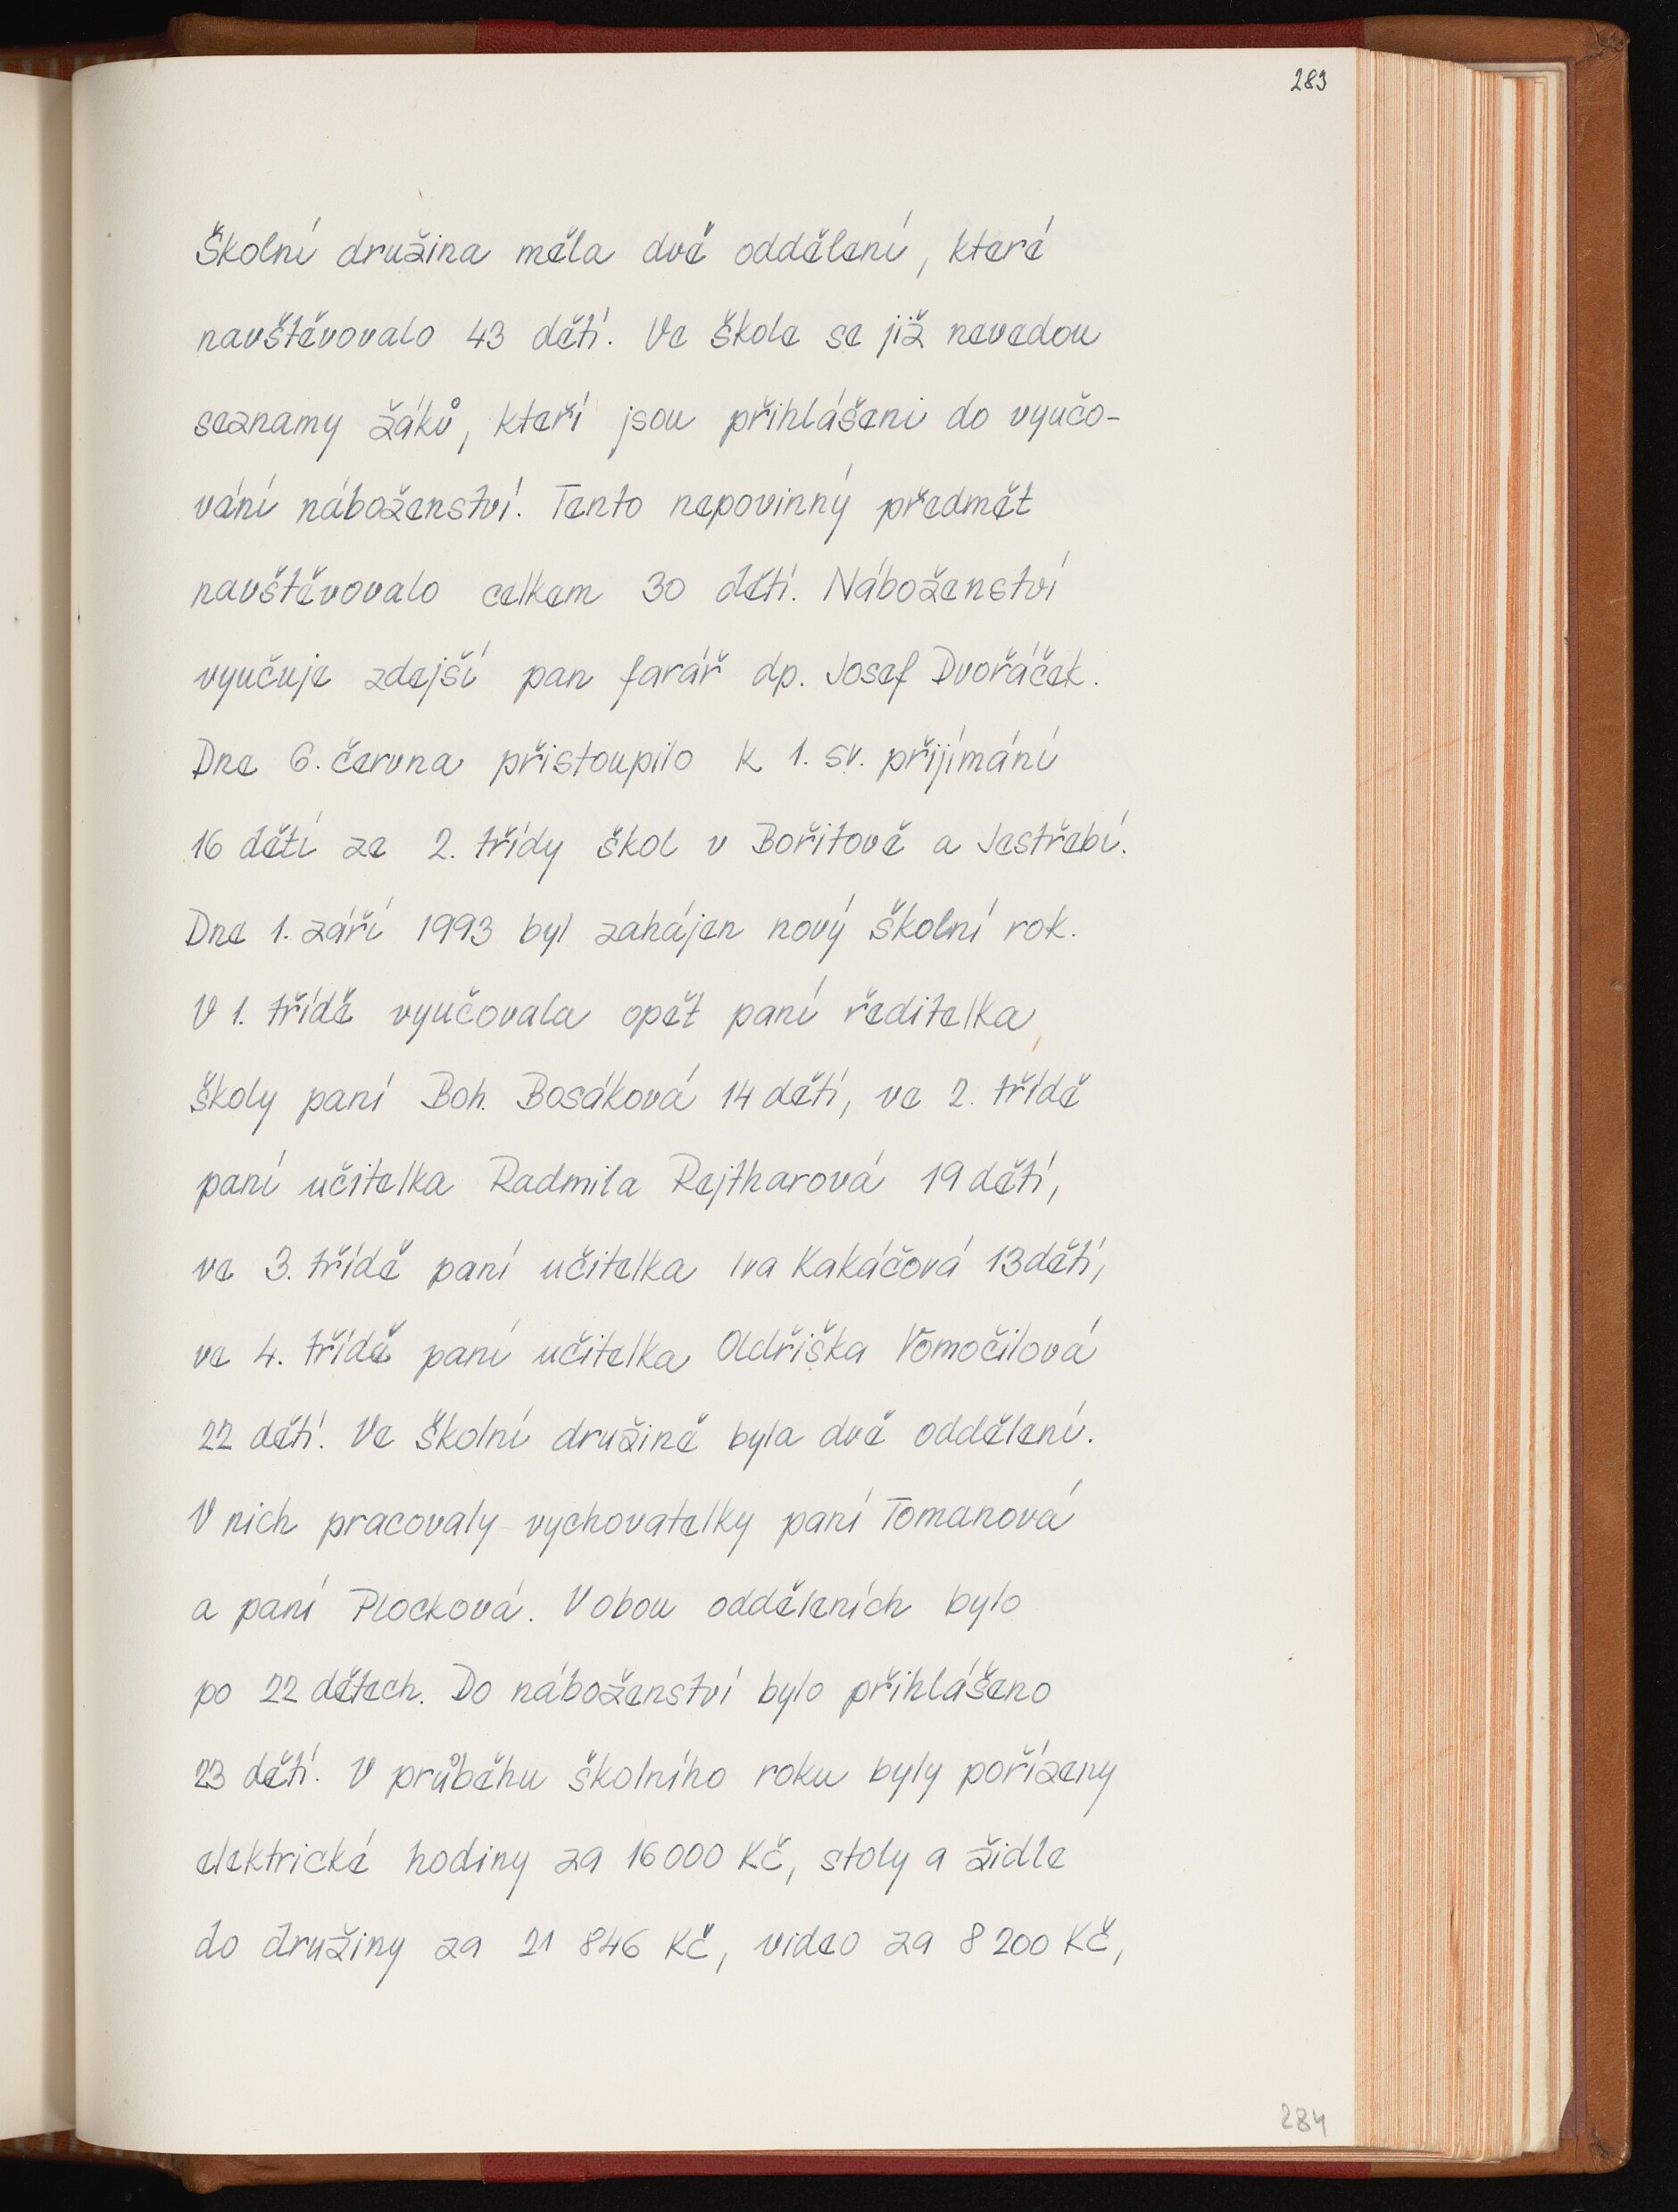 283
Školní družina měla dvě oddělení, které
navštěvovalo 43 dětí. Ve škole se již nevedou
seznamy žáků, kteří jsou přihlášeni do vyučo-
vání náboženství. Tento nepovinný předmět
navštěvovalo celkem 30 dětí. Náboženství
vyučuje zdejší pan farář dp. Josef Dvořáček.
Dne 6. června přistoupilo k 1. sv. přijímání
16 dětí ze 2. třídy škol v Bořitově a Jestřebí.
Dne 1. září 1993 byl zahájen nový školní rok.
V 1. třídě vyučovala opět paní ředitelka
školy paní Boh. Bosáková 14 dětí, ve 2. třídě
paní učitelka Radmila Rejtharová 19 dětí,
ve 3. třídě paní učitelka Iva Kakáčová 13 dětí,
ve 4. třídě paní učitelka Oldřiška Vomočilová
22 dětí. Ve školní družině byla dvě oddělení.
V nich pracovaly vychovatelky paní Tomanová
a paní Plocková. V obou odděleních bylo
po 22 dětech. Do náboženství bylo přihlášeno
23 dětí. V průběhu školního roku byly pořízeny
elektrické hodiny za 16 000 Kč, stoly a židle
do družiny za 21 846 Kč, video za 8 200 Kč,
284